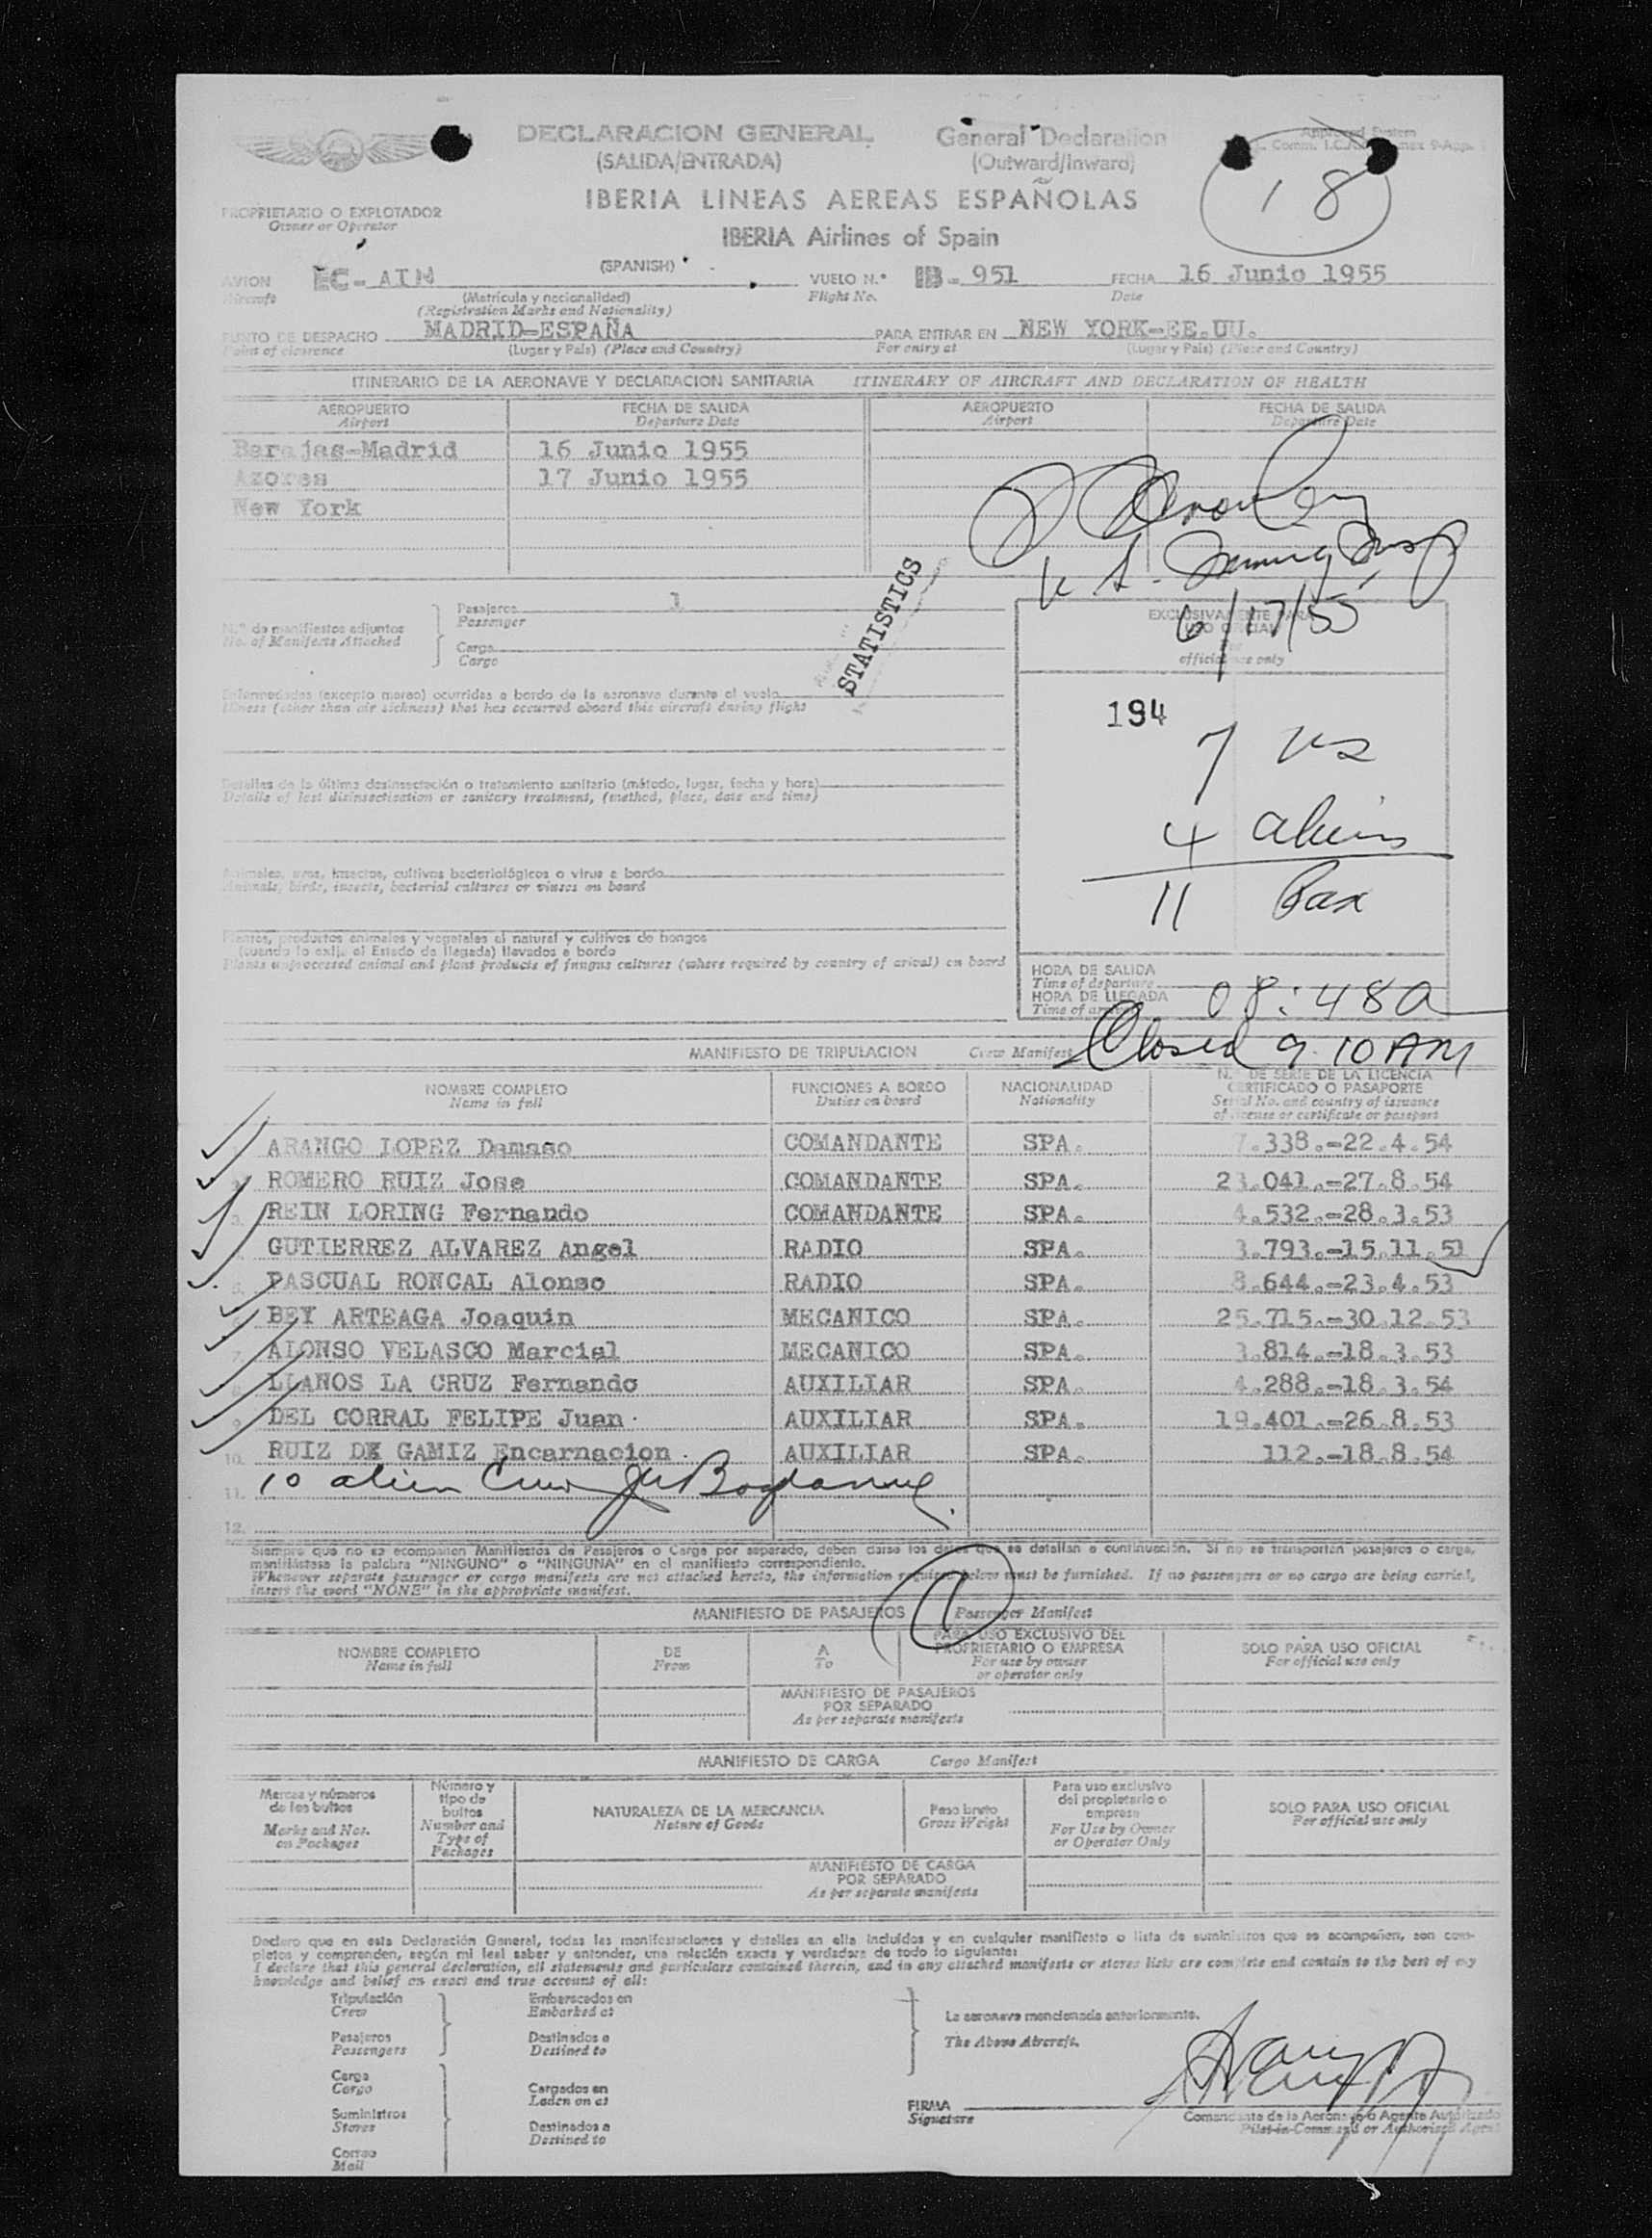 DECLARACION GENERAL General Declaration
(SALIDA/ENTRADA) (Outward/Inward)
18
IBERIA LINEAS AEREAS ESPAÑOLAS
PROPRIETARIO O EXPLOTADOR
Owner or Operator
IBERIA Airlines of Spain
(SPANISH)
AVION EC-AIN VUELO N.º IB-951 FECHA 16 Junio 1955
Aircraft (Matrícula y nacionalidad) Flight No. Date
(Registration Marks and Nationality)
PUNTO DE DESPACHO MADRID-ESPAÑA PARA ENTRAR EN NEW YORK-EE.UU.
Point of clearence (Lugar y País) (Place and Country) For entry at (Lugar y País) (Place and Country)
ITINERARIO DE LA AERONAVE Y DECLARACION SANITARIA ITINERARY OF AIRCRAFT AND DECLARATION OF HEALTH
AEROPUERTO FECHA DE SALIDA AEROPUERTO FECHA DE SALIDA
Airport Departure Date Airport Departure Date
Barajas-Madrid 16 Junio 1955
Azores 17 Junio 1955
New York
6/17/55
STATISTICS
N.º de manifiestos adjuntos
No. of Manifests Attached
Pasajeros 1
Passenger
Carga
Cargo
EXCLUSIVAMENTE PARA
USO OFICIAL
For
official use only
Enfermedades (excepto mareo) ocurridas a bordo de la aeronave durante el vuelo
Illness (other than air sickness) that has occurred aboard this aircraft during flight
194
7 us
4 aliens
11 Pax
Detalles de la última desinsectación o tratamiento sanitario (método, lugar, fecha y hora)
Details of last disinsectisation or sanitary treatment, (method, place, date and time)
Animales, aves, insectos, cultivos bacteriológicos o virus a bordo
Animals, birds, insects, bacterial cultures or viruses on board
Plantas, productos animales y vegetales al natural y cultivos de hongos
(cuando lo exija el Estado de llegada) llevados a bordo
Plants unprocessed animal and plant products of fungus cultures (where required by country of arival) on board
HORA DE SALIDA
Time of departure
HORA DE LLEGADA 08:48a
Time of
Closed 9.10 AM
MANIFIESTO DE TRIPULACION Crew Manifest
NOMBRE COMPLETO FUNCIONES A BORDO NACIONALIDAD N. DE SERIE DE LA LICENCIA
Name in full Duties on board Nationality CERTIFICADO O PASAPORTE
Serial No. and country of issuance
of license or certificate or passport
ARANGO LOPEZ Damaso COMANDANTE SPA. 7.338.-22.4.54
ROMERO RUIZ Jose COMANDANTE SPA. 23.041.-27.8.54
3. REIN LORING Fernando COMANDANTE SPA. 4.532.-28.3.53
GUTIERREZ ALVAREZ Angel RADIO SPA. 3.793.-15.11.51
5. PASCUAL RONCAL Alonso RADIO SPA. 8.644.-23.4.53
BEY ARTEAGA Joaquin MECANICO SPA. 25.715.-30.12.53
7. ALONSO VELASCO Marcial MECANICO SPA. 3.814.-18.3.53
LLANOS LA CRUZ Fernando AUXILIAR SPA. 4.288.-18.3.54
9. DEL CORRAL FELIPE Juan AUXILIAR SPA. 19.401.-26.8.53
10. RUIZ DE GAMIZ Encarnacion AUXILIAR SPA. 112.-18.8.54
11. 10 alien Crew
12.
Siempre que no se acompañen Manifiestos de Pasajeros o Carga por separado, deben darse los datos que se detallan a continuación. Si no se transportan pasajeros o carga,
manifiéstese la palabra "NINGUNO" o "NINGUNA" en el manifiesto correspondiente.
Whenever separate passenger or cargo manifests are not attached hereto, the information required below must be furnished. If no passengers or no cargo are being carried,
insert the word "NONE" in the appropriate manifest.
MANIFIESTO DE PASAJEROS 1 Passenger Manifest
NOMBRE COMPLETO DE A PARA USO EXCLUSIVO DEL SOLO PARA USO OFICIAL
Name in full From To PROPRIETARIO O EMPRESA For official use only
For use by owner
or operator only
MANIFIESTO DE PASAJEROS
POR SEPARADO
As per separate manifests
MANIFIESTO DE CARGA Cargo Manifest
Marcas y números
de los bultos
Marks and Nos.
on Packages
Número y
tipo de
bultos
Number and
Type of
Packages
NATURALEZA DE LA MERCANCIA
Nature of Goods
Peso bruto
Gross Weight
Para uso exclusivo
del propietario o
empresa
For Use by Owner
or Operator Only
SOLO PARA USO OFICIAL
For official use only
MANIFIESTO DE CARGA
POR SEPARADO
As per separate manifests
Declaro que en esta Declaración General, todas las manifestaciones y detalles en ella incluidos y en cualquier manifiesto o lista de suministros que se acompañen, son com-
pletos y comprenden, según mi leal saber y entender, una relación exacta y verdadera de todo lo siguiente:
I declare that this general declaration, all statements and particulars contained therein, and in any attached manifests or stores lists are complete and contain to the best of my
knowledge and belief an exact and true account of all:
Tripulación
Crew
Embarcados en
Embarked at
Pasajeros
Passengers
Destinados a
Destined to
La aeronave mencionada anteriormente.
The Above Aircraft.
Carga
Cargo
Cargados en
Laden on at
Suministros
Stores
Destinados a
Destined to
Correo
Mail
FIRMA
Signature
Comandante de la Aeronave o Agente Autorizado
Pilot-in-Command or Authorised Agent